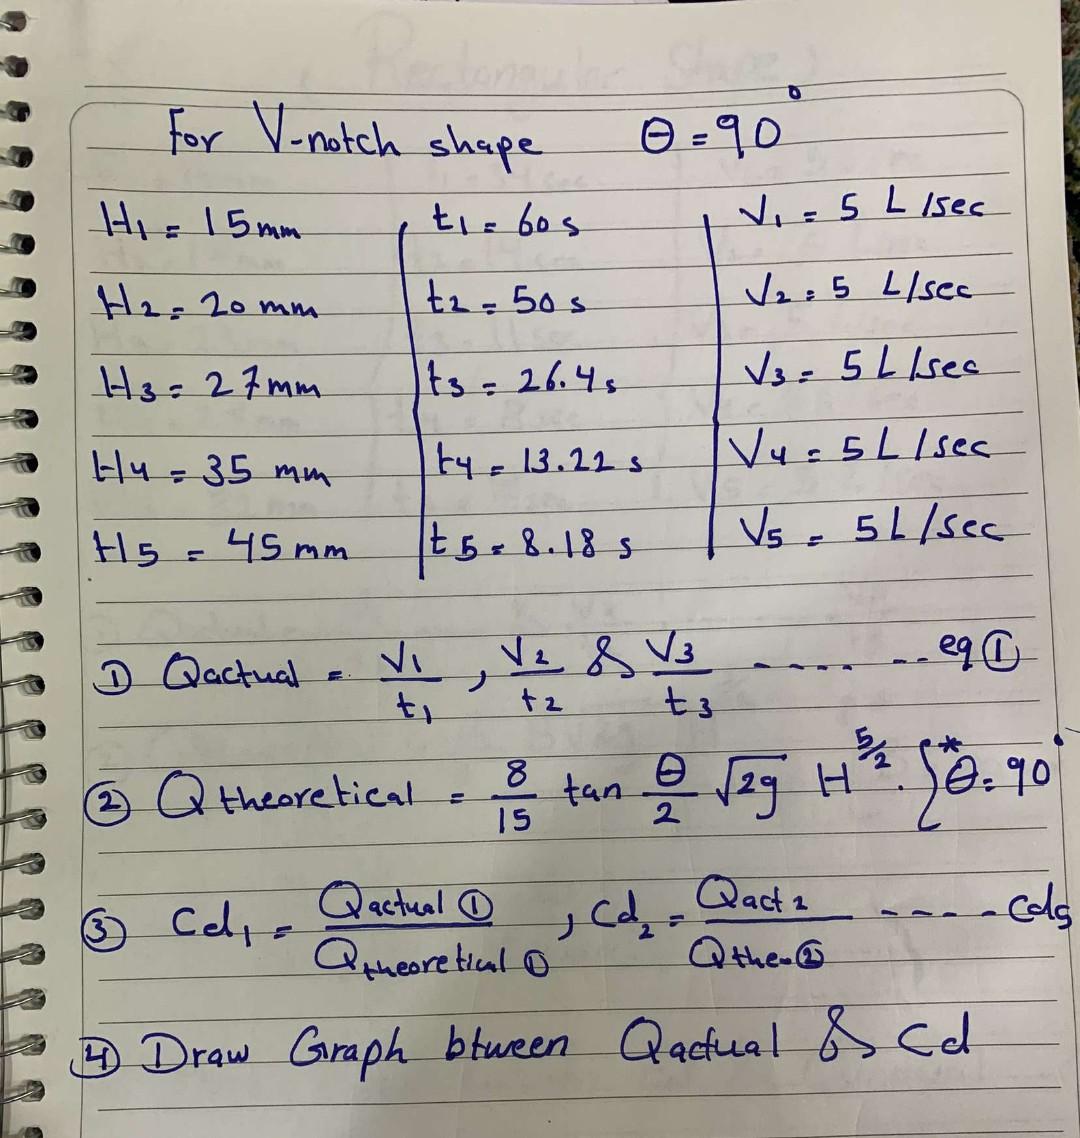 For V-notch shape θ = 90°
H1 = 15 mm t1 = 60 s V1 = 5 L/sec
H2 = 20 mm t2 = 50 s V2 = 5 L/sec
H3 = 27 mm t3 = 26.4 s V3 = 5 L/sec
H4 = 35 mm t4 = 13.22 s V4 = 5 L/sec
H5 = 45 mm t5 = 8.18 s V5 = 5 L/sec
① Qactual = V1/t1 , V2/t2 & V3/t3 ---- -- eq ①
② Q theoretical = 8/15 tan θ/2 √2g H^5/2 . { *θ = 90°
③ Cd1 = Qactual ① / Qtheoretical ① , Cd2 = Qact 2 / Qthe-② ---- Cd5
④ Draw Graph btween Qactual & Cd